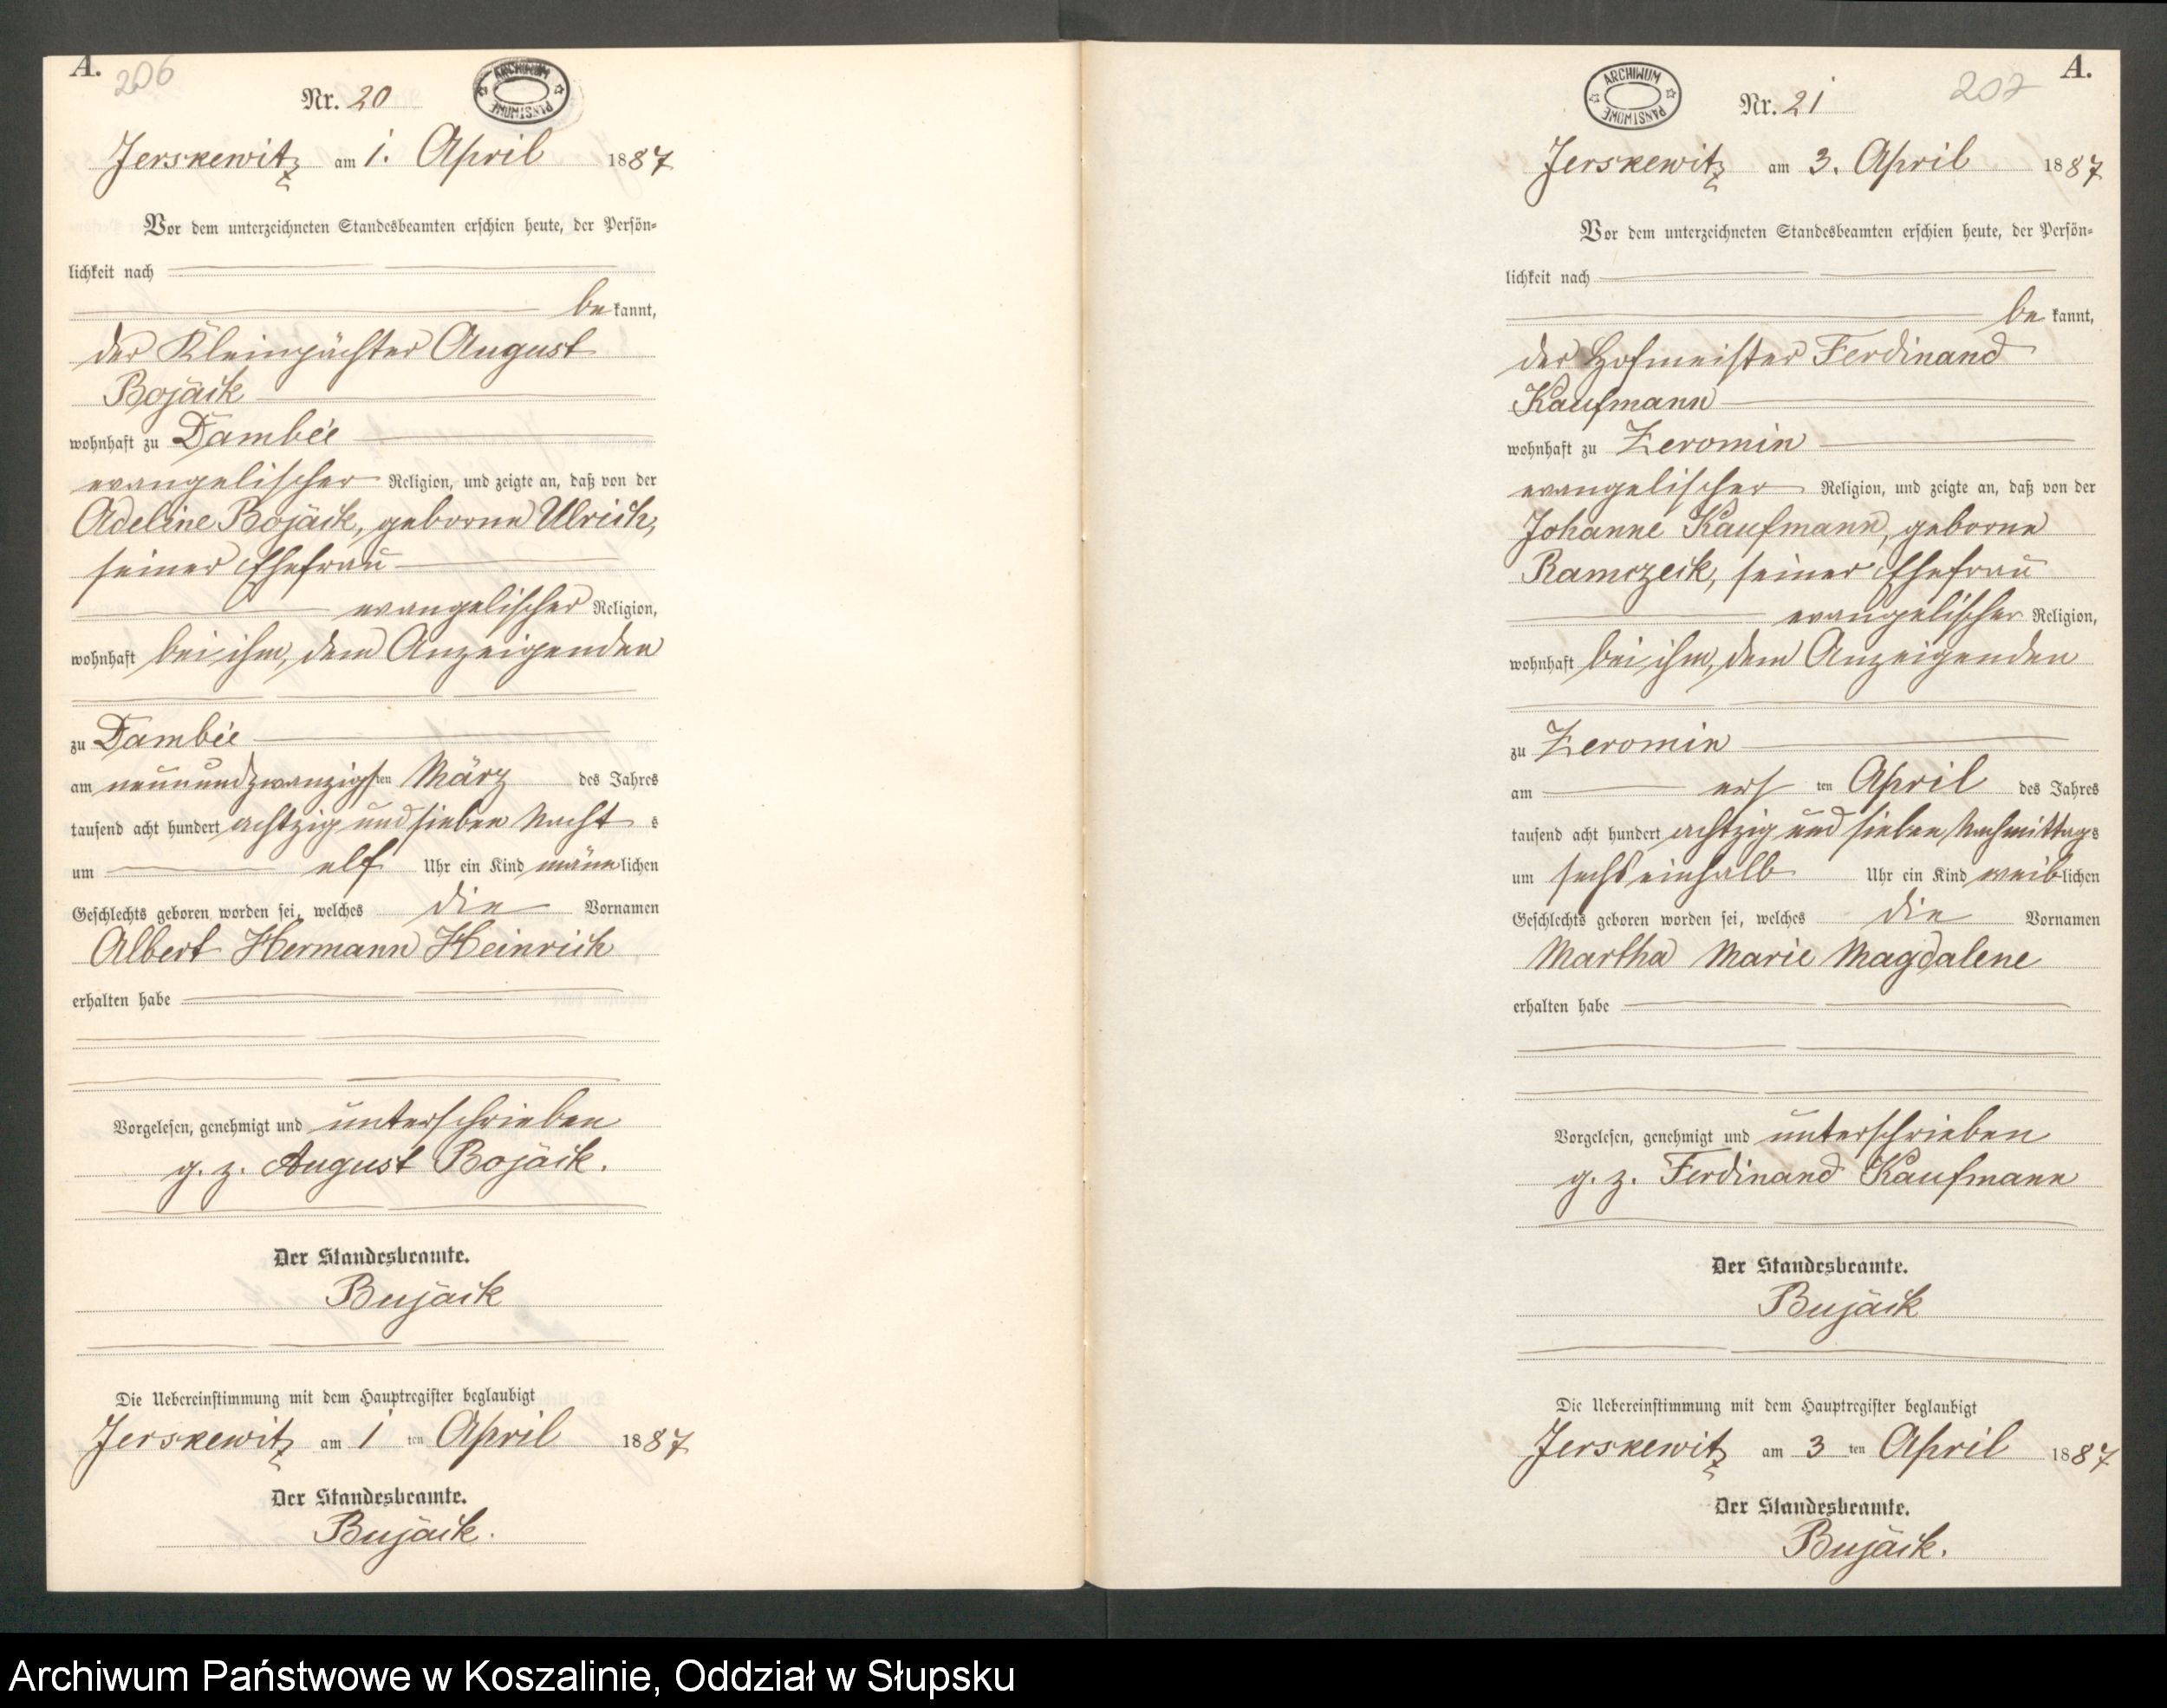 A.
206
Nr. 20
ARCHIWUM PAŃSTWOWE
Jerskewitz am 1. April 1887
Vor dem unterzeichneten Standesbeamten erschien heute, der Persön-
lichkeit nach
bekannt,
der Kleinpächter August
Bojäck
wohnhaft zu Dambée
evangelischer Religion, und zeigte an, daß von der
Adeline Bojäck, geborne Ulrich,
seiner Ehefrau
evangelischer Religion,
wohnhaft bei ihm, dem Anzeigenden
zu Dambée
am neunundzwanzigsten März des Jahres
tausend acht hundert achtzig und sieben Nachts
um elf Uhr ein Kind männlichen
Geschlechts geboren worden sei, welches die Vornamen
Albert Hermann Heinrich
erhalten habe
Vorgelesen, genehmigt und unterschrieben
g. z. August Bojäck.
Der Standesbeamte.
Bujäck
Die Uebereinstimmung mit dem Hauptregister beglaubigt
Jerskewitz am 1 ten April 1887
Der Standesbeamte.
Bujäck.
A.
207
Nr. 21
ARCHIWUM PAŃSTWOWE
Jerskewitz am 3. April 1887
Vor dem unterzeichneten Standesbeamten erschien heute, der Persön-
lichkeit nach
bekannt,
der Hofmeister Ferdinand
Kaufmann
wohnhaft zu Zeromin
evangelischer Religion, und zeigte an, daß von der
Johanne Kaufmann, geborne
Ramczeck, seiner Ehefrau
evangelischer Religion,
wohnhaft bei ihm, dem Anzeigenden
zu Zeromin
am ersten April des Jahres
tausend acht hundert achtzig und sieben Nachmittags
um sechs einhalb Uhr ein Kind weiblichen
Geschlechts geboren worden sei, welches die Vornamen
Martha Marie Magdalene
erhalten habe
Vorgelesen, genehmigt und unterschrieben
g. z. Ferdinand Kaufmann
Der Standesbeamte.
Bujäck
Die Uebereinstimmung mit dem Hauptregister beglaubigt
Jerskewitz am 3 ten April 1887
Der Standesbeamte.
Bujäck.
Archiwum Państwowe w Koszalinie, Oddział w Słupsku